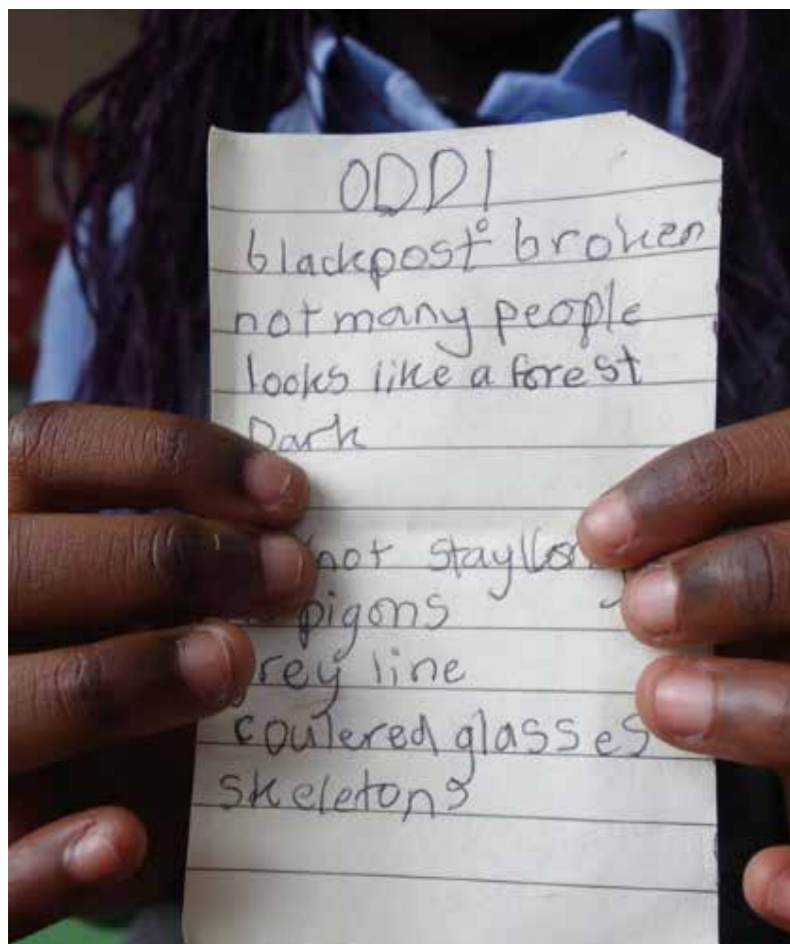 ODD!
blackpost broken
not many people
looks like a forest
Dark
not stay
pigons
rey line
coulered glasses
skeletons